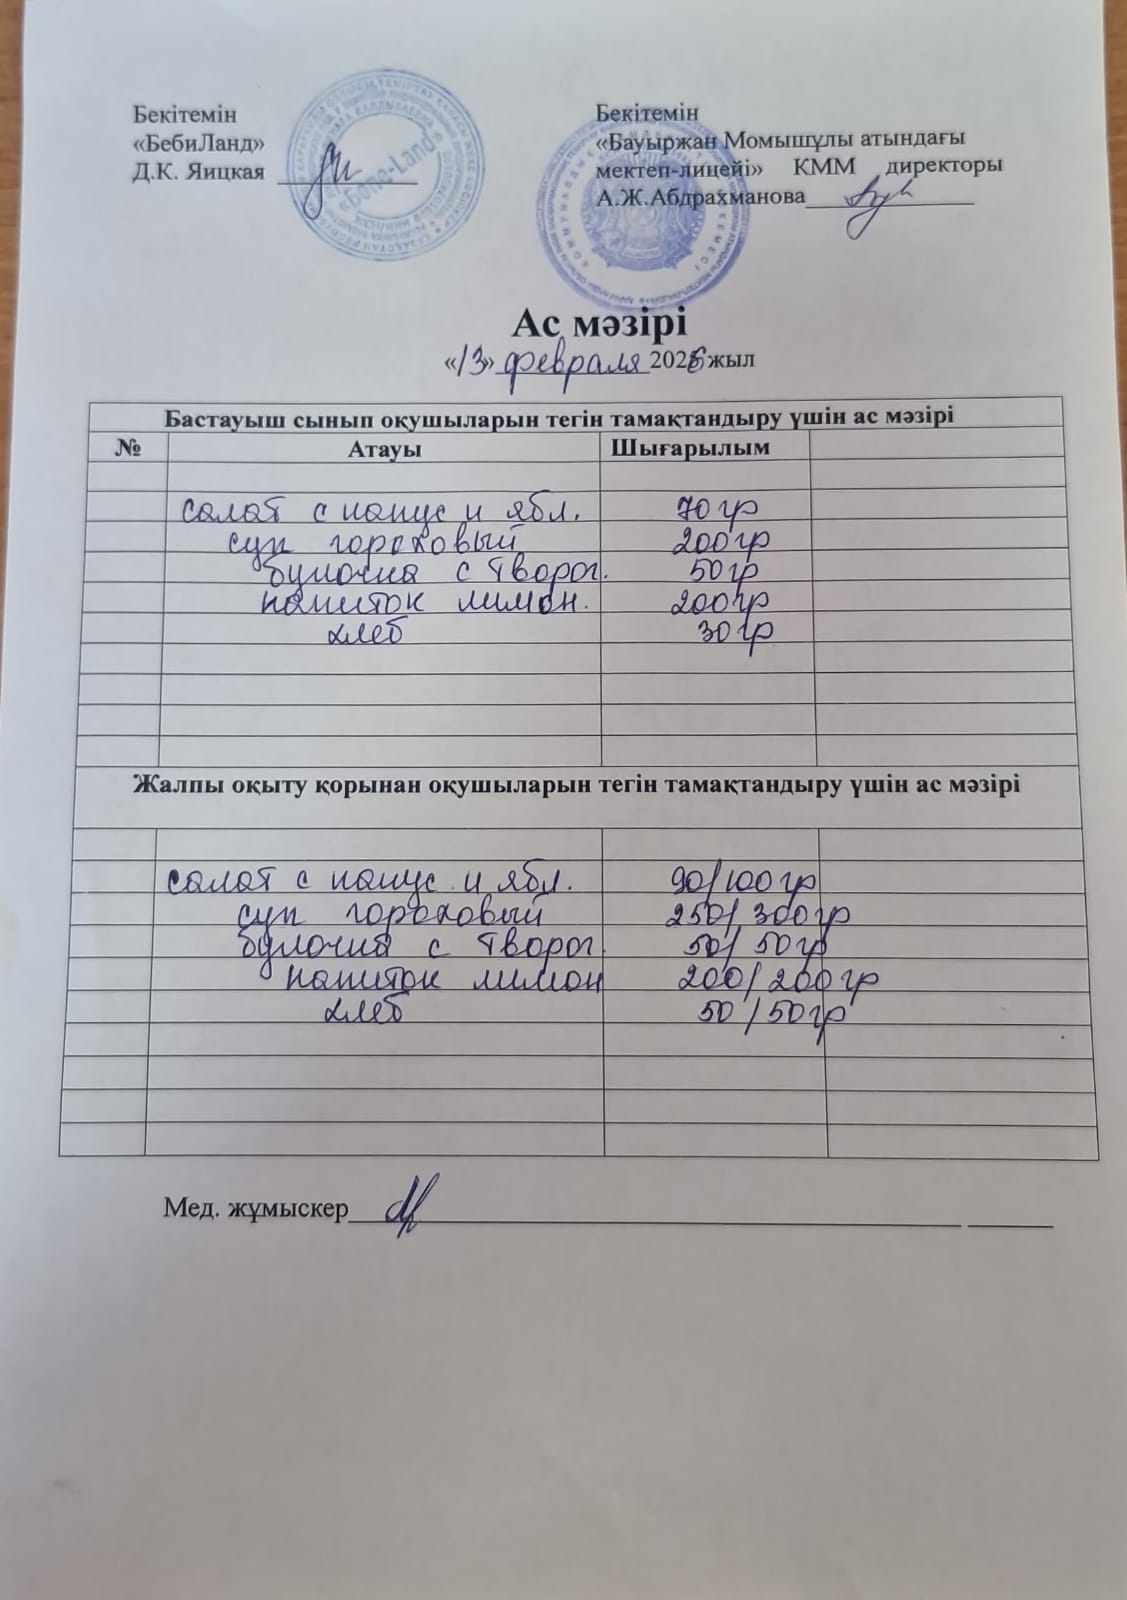 Бекітемін
«БебиЛанд»
Д.К. Яицкая
Бекітемін
«Бауыржан Момышұлы атындағы
мектеп-лицейі» КММ директоры
А.Ж.Абдрахманова
Ас мәзірі
«13» февраля 2026 жыл
Бастауыш сынып оқушыларын тегін тамақтандыру үшін ас мәзірі
№ Атауы Шығарылым
салат с капус и ябл. 70 гр
суп гороховый 200 гр
булочка с творог. 50 гр
напиток лимон. 200 гр
хлеб 30 гр
Жалпы оқыту қорынан оқушыларын тегін тамақтандыру үшін ас мәзірі
салат с капус. и ябл. 90/100 гр
суп гороховый 250/300 гр
булочка с творог. 50/50 гр
напиток лимон 200/200 гр
хлеб 50/50 гр
Мед. жұмыскер